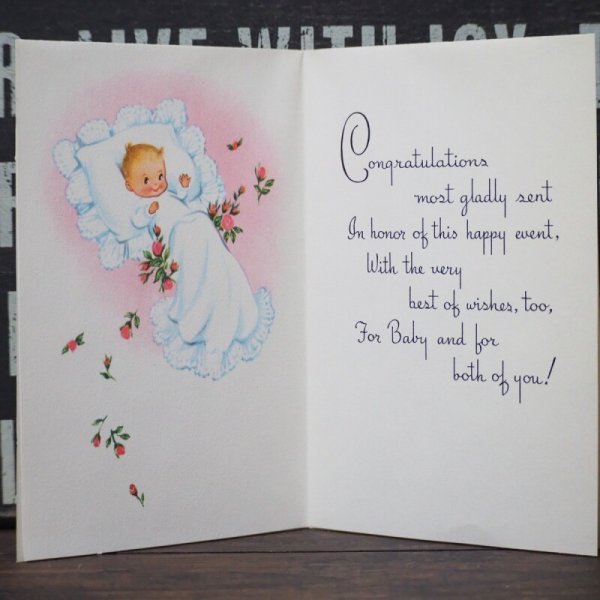 LIVE WITH JOY
Congratulations
most gladly sent
In honor of this happy event,
With the very
best of wishes, too,
For Baby and for
both of you!